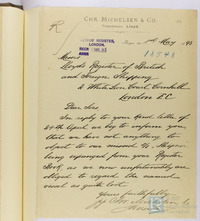 CHR. MICHELSEN & CO.
LONDON.
13548
May
Messrs
Lloyd's Register of British
and Foreign Shipping
2 White Lion Court Cornhill
London E.C.
Dear Sirs
In reply to your kind letter of
29th April we beg to inform you,
that we have not anything to
object to our missed
being expunged from your Register
Book, as we now unfortunately are
obliged to regard the named
vessel as quite lost.
Yours faithfully